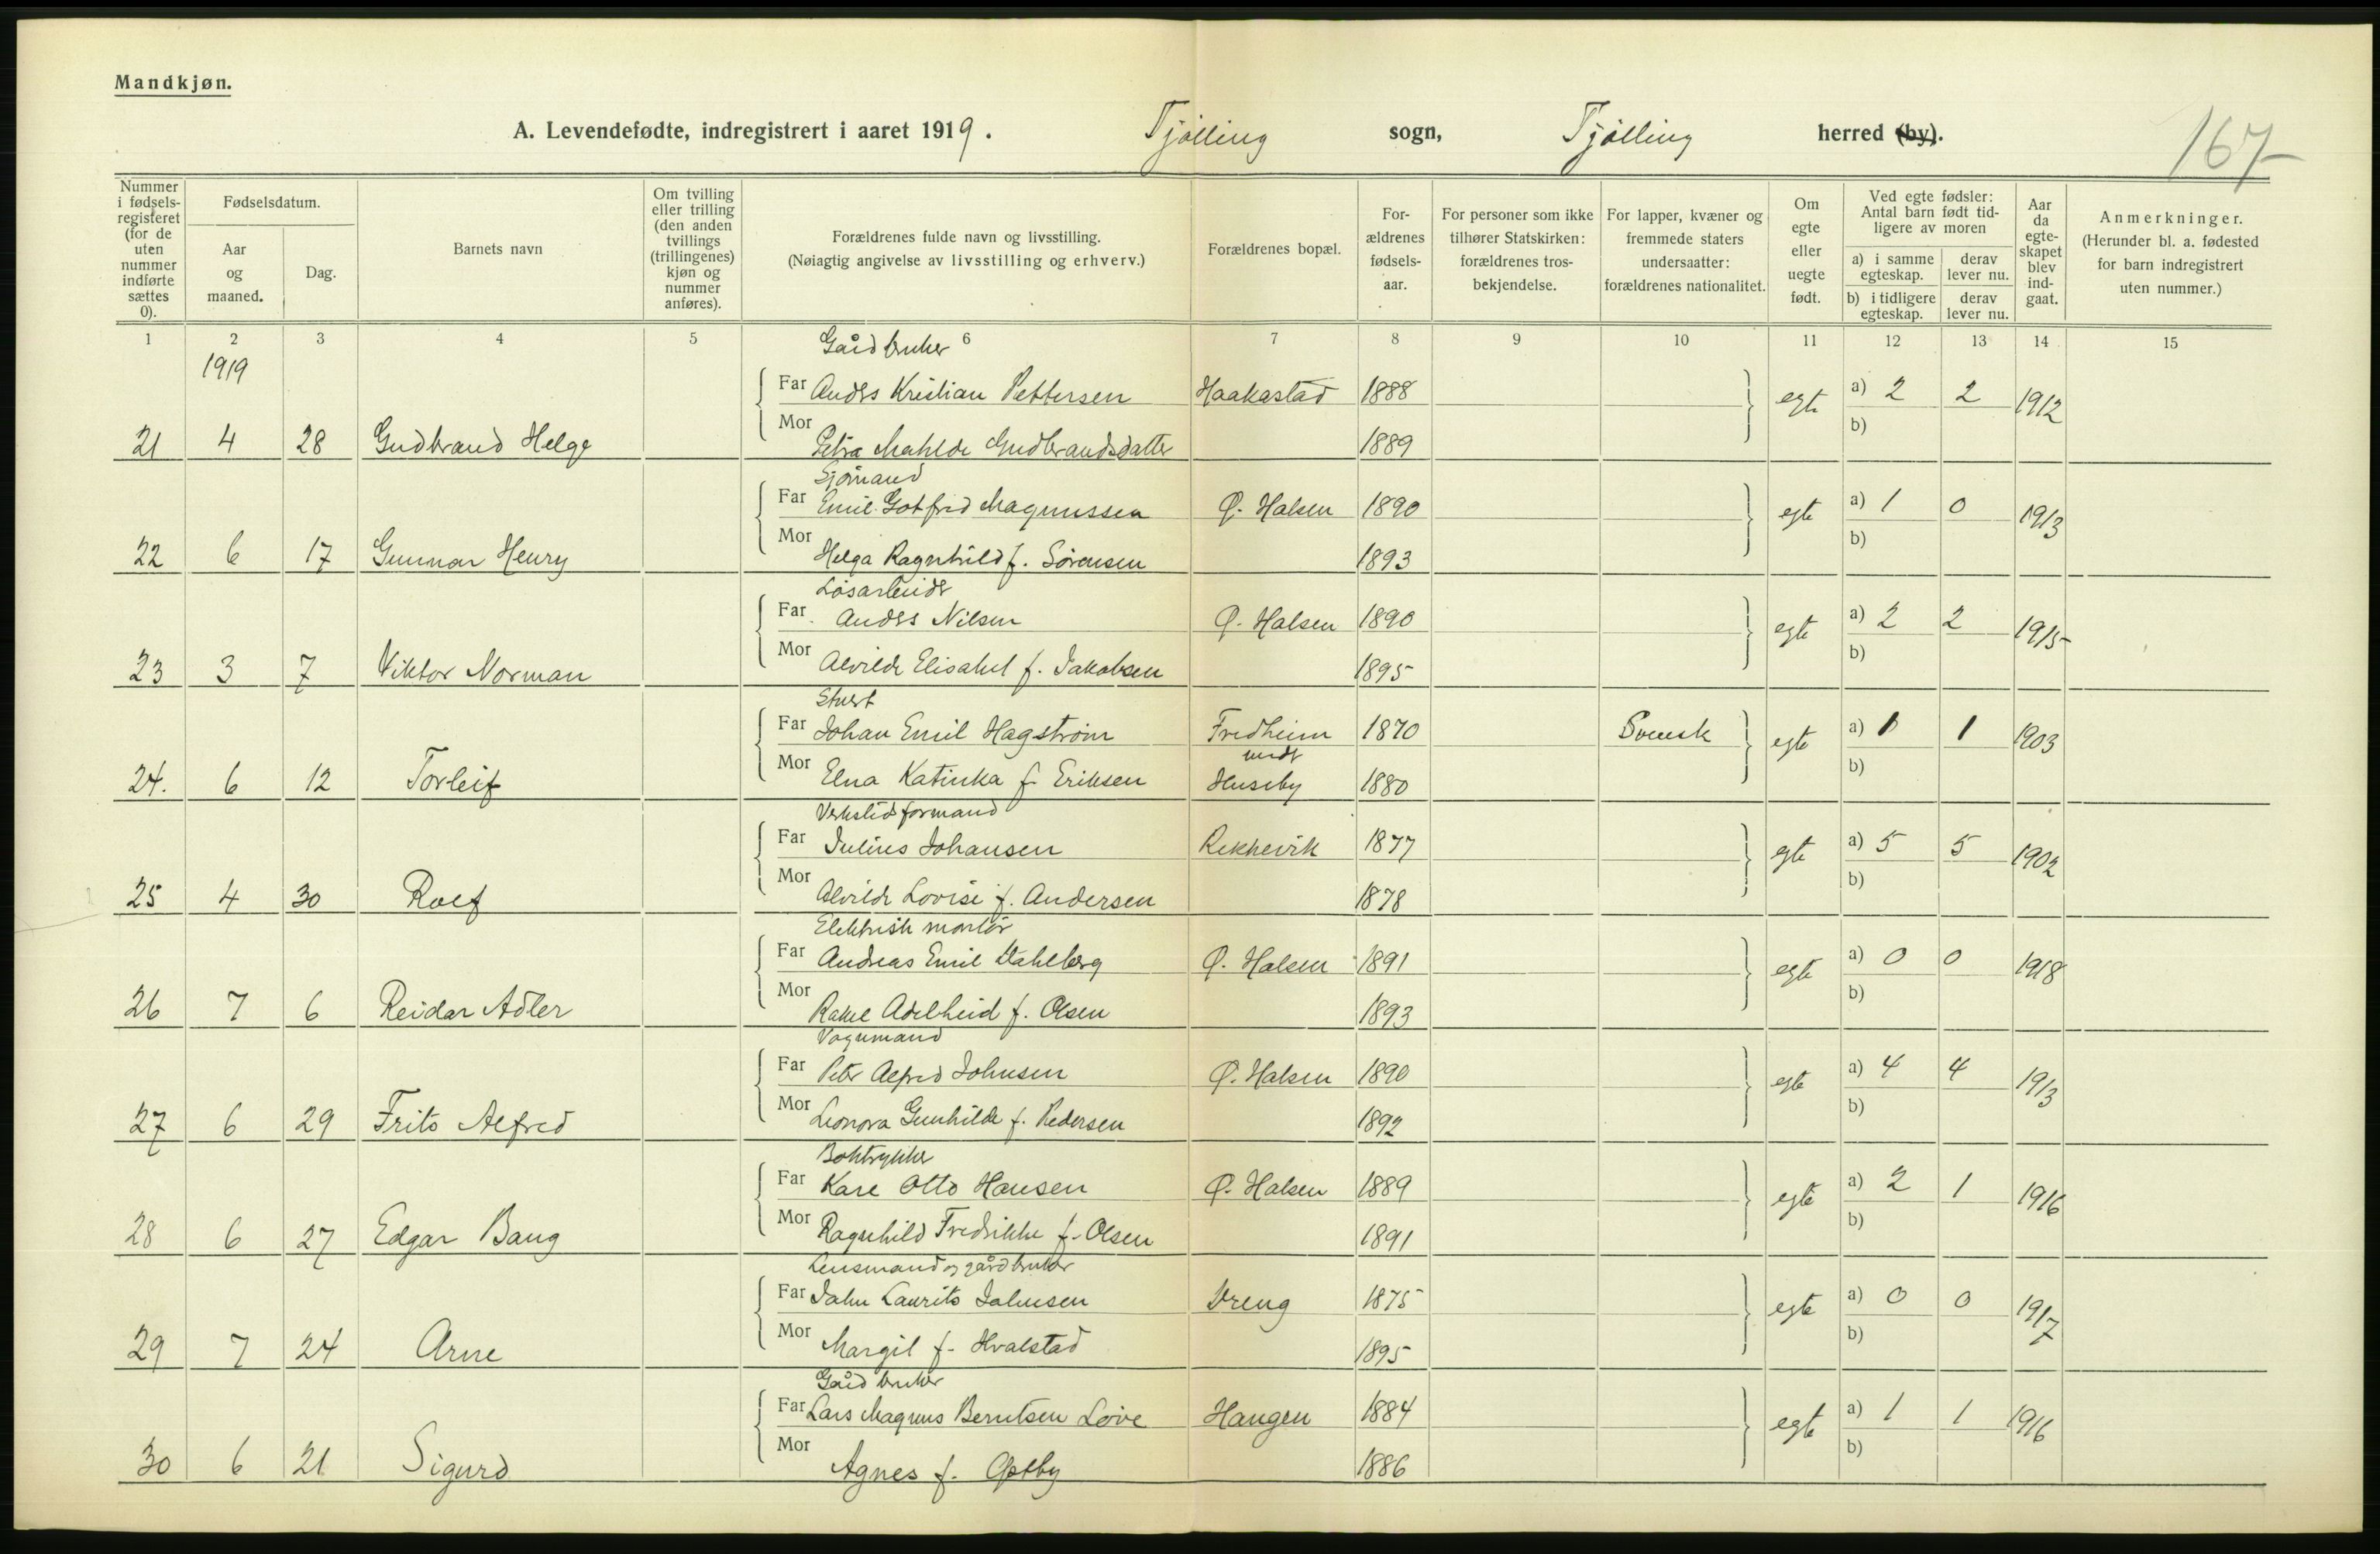 Mandkjøn.
A. Levendefødte, indregistrert i aaret 1919. Tjølling sogn, Tjølling herred (by). 167
Nummer i fødsels-registeret (for de uten nummer indførte sættes 0).
Fødselsdatum.
Aar og maaned.
Dag.
Barnets navn
Om tvilling eller trilling (den anden tvillings (trillingenes) kjøn og nummer anføres).
Forældrenes fulde navn og livsstilling.
(Nøiagtig angivelse av livsstilling og erhverv.)
Forældrenes bopæl.
For-ældrenes fødsels-aar.
For personer som ikke tilhører Statskirken: forældrenes tros-bekjendelse.
For lapper, kvæner og fremmede staters undersaatter: forældrenes nationalitet.
Om egte eller uegte født.
Ved egte fødsler: Antal barn født tid-ligere av moren
a) i samme egteskap. derav lever nu.
b) i tidligere egteskap. derav lever nu.
Aar da egte-skapet blev ind-gaat.
Anmerkninger.
(Herunder bl. a. fødested for barn indregistrert uten nummer.)
1 2 3 4 5 6 7 8 9 10 11 12 13 14 15
1919
Gårdbruker
Far Anders Kristian Pettersen Haakastad 1888 egte a) 2 2 1912
21 4 28 Gudbrand Helge Mor Petra Mathilde Gudbrandsdatter 1889 b)
Sjømand
Far Emil Gotfred Magnussen Ø. Halsen 1890 egte a) 1 0 1913
22 6 17 Gunnar Henry Mor Helga Ragnhild f. Sørensen 1893 b)
Løsarbeider
Far Anders Nilsen Ø. Halsen 1890 egte a) 2 2 1915
23 3 7 Viktor Norman Mor Alvilde Elisabet f. Jakobsen 1895 b)
Stuert
Far Johan Emil Hagstrøm Fredheim 1870 Svensk egte a) 1 1 1903
under
24. 6 12 Torleif Mor Elna Katinka f. Eriksen Huseby 1880 b)
Verkstedsformand
Far Julius Johansen Rekkevik 1877 egte a) 5 5 1902
25 4 30 Rolf Mor Alvilde Lovise f. Andersen 1878 b)
Elektrisk montør
Far Andreas Emil Dahlberg Ø. Halsen 1891 egte a) 0 0 1918
26 7 6 Reidar Adler Mor Rakel Adelheid f. Olsen 1893 b)
Vognmand
Far Peter Alfred Johnsen Ø. Halsen 1890 egte a) 4 4 1913
27 6 29 Frits Alfred Mor Leonora Gunhilde f. Pedersen 1892 b)
Boktrykker
Far Karl Otto Hansen Ø. Halsen 1889 egte a) 2 1 1916
28 6 27 Edgar Bang Mor Ragnhild Fredrikke f. Olsen 1891 b)
Lensmand og gårdbruker
Far Jahn Laurits Jahnsen Vreng 1875 egte a) 0 0 1917
29 7 24 Arne Mor Margit f. Hvalstad 1895 b)
Gårdbruker
Far Lars Magnus Berntsen Løve Haugen 1884 egte a) 1 1 1916
30 6 21 Sigurd Mor Agnes f. Østby 1886 b)